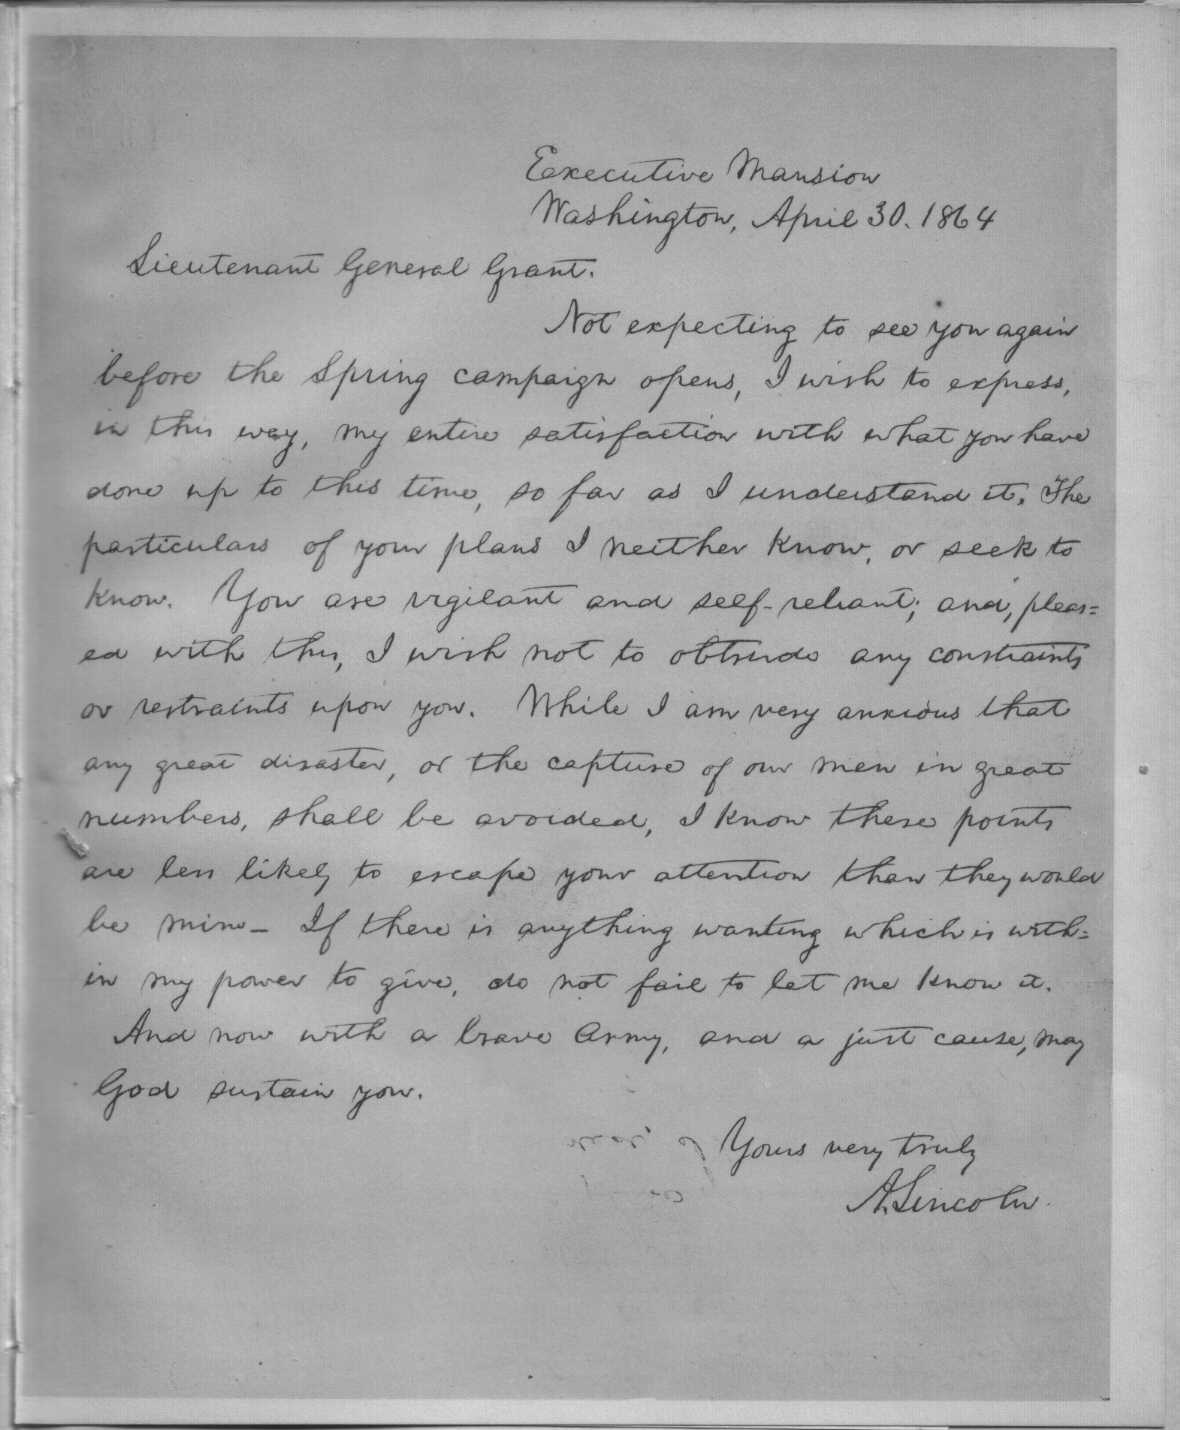 Executive Mansion
Washington, April 30. 1864
Lieutenant General Grant.
Not expecting to see you again
before the Spring campaign opens, I wish to express,
in this way, my entire satisfaction with what you have
done up to this time, so far as I understand it. The
particulars of your plans I neither know, or seek to
know. You are vigilant and self-reliant; and, pleas=
ed with this, I wish not to obtrude any constraints
or restraints upon you. While I am very anxious that
any great disaster, or the capture of our men in great
numbers, shall be avoided, I know these points
are less likely to escape your attention than they would
be mine_ If there is anything wanting which is with=
in my power to give, do not fail to let me know it.
And now with a brave Army, and a just cause, may
God sustain you.
Yours very truly
A. Lincoln.